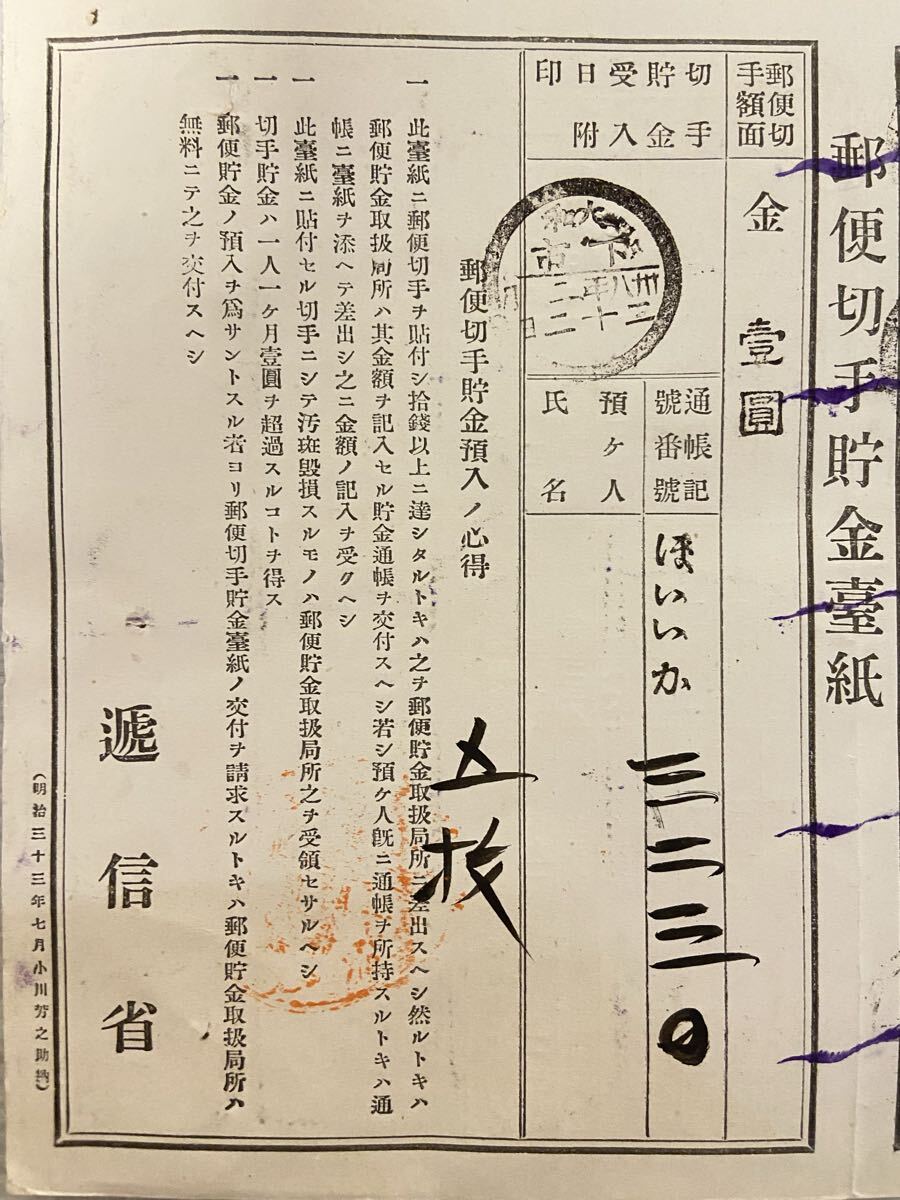 郵便切手貯金臺紙
郵便切手額面
金壹圓
切手貯金受入日附印
大和
下市
卅八年
二十二
通帳記號番號
ほいいか
預ケ人氏名
五枚
郵便切手貯金預入ノ心得
一 此臺紙ニ郵便切手ヲ貼付シ拾錢以上ニ達シタルトキハ之ヲ郵便貯金取扱局所ニ差出スヘシ然ルトキハ
郵便貯金取扱局所ハ其金額ヲ記入セル貯金通帳ヲ交付スヘシ若シ預ケ人旣ニ通帳ヲ所持スルトキハ通
帳ニ臺紙ヲ添ヘテ差出シ之ニ金額ノ記入ヲ受クヘシ
一 此臺紙ニ貼付セル切手ニシテ汚斑毀損スルモノハ郵便貯金取扱局所之ヲ受領セサルヘシ
一 切手貯金ハ一人一ケ月壹圓ヲ超過スルコトヲ得ス
一 郵便貯金ノ預入ヲ爲サントスル者ヨリ郵便切手貯金臺紙ノ交付ヲ請求スルトキハ郵便貯金取扱局所ハ
無料ニテ之ヲ交付スヘシ
遞信省
(明治三十三年七月小川芳之助納)